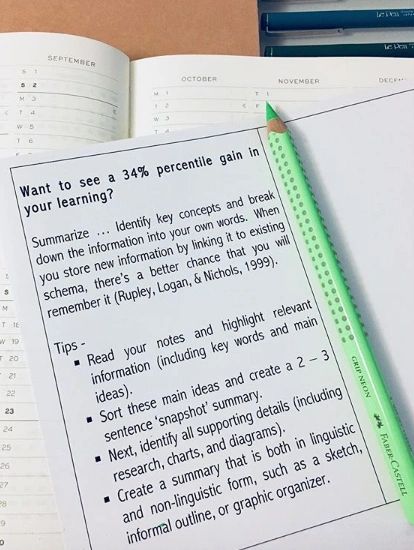 Le Pen
Le Pen
SEPTEMBER
OCTOBER
NOVEMBER
S 1
S 2
M 3
T 4
W 5
M 1
T 2
T 1
F
Want to see a 34% percentile gain in
your learning?
Summarize ... Identify key concepts and break
down the information into your own words. When
you store new information by linking it to existing
schema, there's a better chance that you will
remember it (Rupley, Logan, & Nichols, 1999).
Tips -
▪ Read your notes and highlight relevant
information (including key words and main
ideas).
▪ Sort these main ideas and create a 2 – 3
sentence 'snapshot' summary.
▪ Next, identify all supporting details (including
research, charts, and diagrams).
▪ Create a summary that is both in linguistic
and non-linguistic form, such as a sketch,
informal outline, or graphic organizer.
GRIP NEON
FABER-CASTELL
19
T 20
21
22
23
24
25
26
27
28